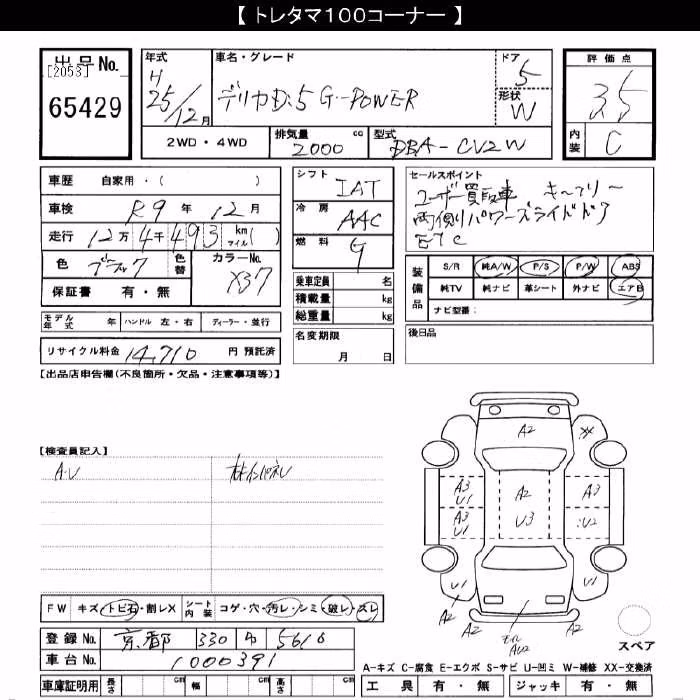 【 トレタマ100コーナー 】
出品No.
[2053]
65429
年式
H
25/12月
車名・グレード
デリカD:5 G-POWER
ドア
5
形状
W
2WD・4WD
排気量 cc
2000
型式
DBA-CV2W
評価点
3.5
内装
C
車歴 自家用・( )
車検 R9年 12月
走行 12万4千493 km マイル( )
色 ブラック
色替
カラーNo.
X37
保証書 有・無
モデル年式 年 ハンドル 左・右 ディーラー・並行
リサイクル料金 14,710 円 預託済
シフト
IAT
冷房
AAC
燃料
G
乗車定員 名
積載量 kg
総重量 kg
名変期限
月 日
セールスポイント
ユーザー買取車 キーフリー
両側パワースライドドア
ETC
装備品
S/R 純A/W P/S P/W ABS
純TV 純ナビ 革シート 外ナビ エアB
ナビ型番:
後日品
【出品店申告欄(不良箇所・欠品・注意事項等)】
【検査員記入】
A・U
A2
A3
U1
A2
A3
A3
U1
U3
U2
U1
U1
A2
A2
A2
スペア
FW キズ・トビ石・割レX シート内装 コゲ・穴・汚レ・シミ・破レ・スレ
登録No. 京都 330 5610
車台No. 1000391
車庫証明用 長さ cm 幅 cm 高さ cm
A-キズ C-腐食 E-エクボ S-サビ U-凹ミ W-補修 XX-交換済
工具 有・無 ジャッキ 有・無